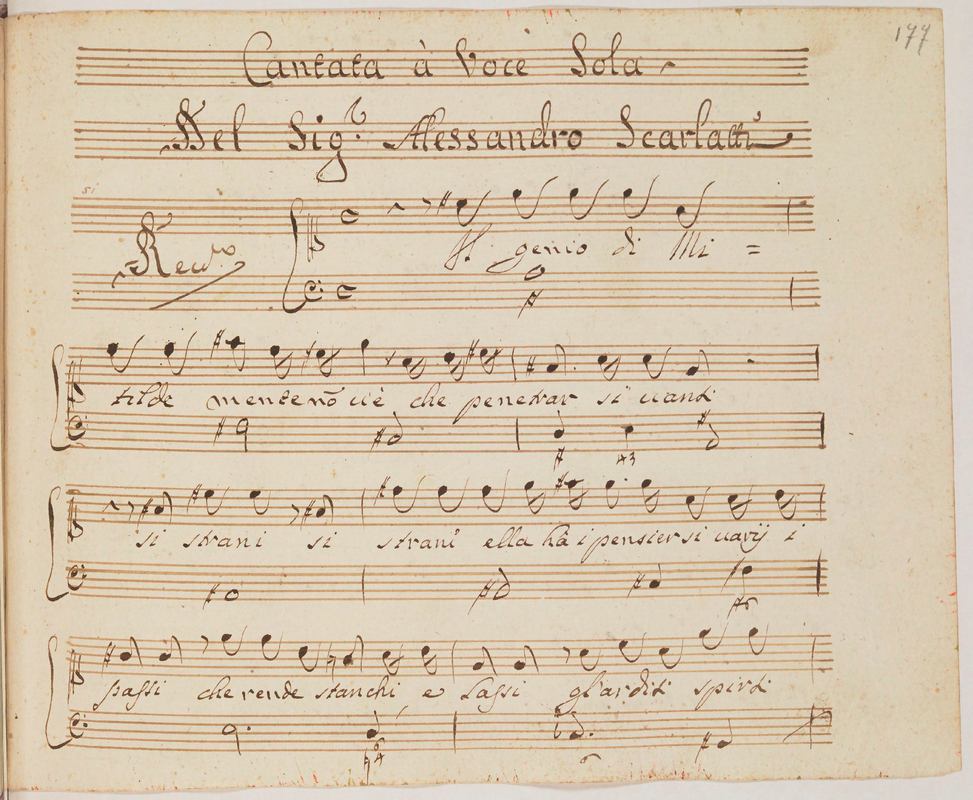 177
Cantata à Voce Sola
Del Sig.r Alessandro Scarlatti
Recit.vo
Il genio di Mi =
tilde mente nõ u'è che penetrar si uanti
si strani si strani ella hà i pensier si uarij i
passi che rende stanchi e lassi gl'arditi spirti